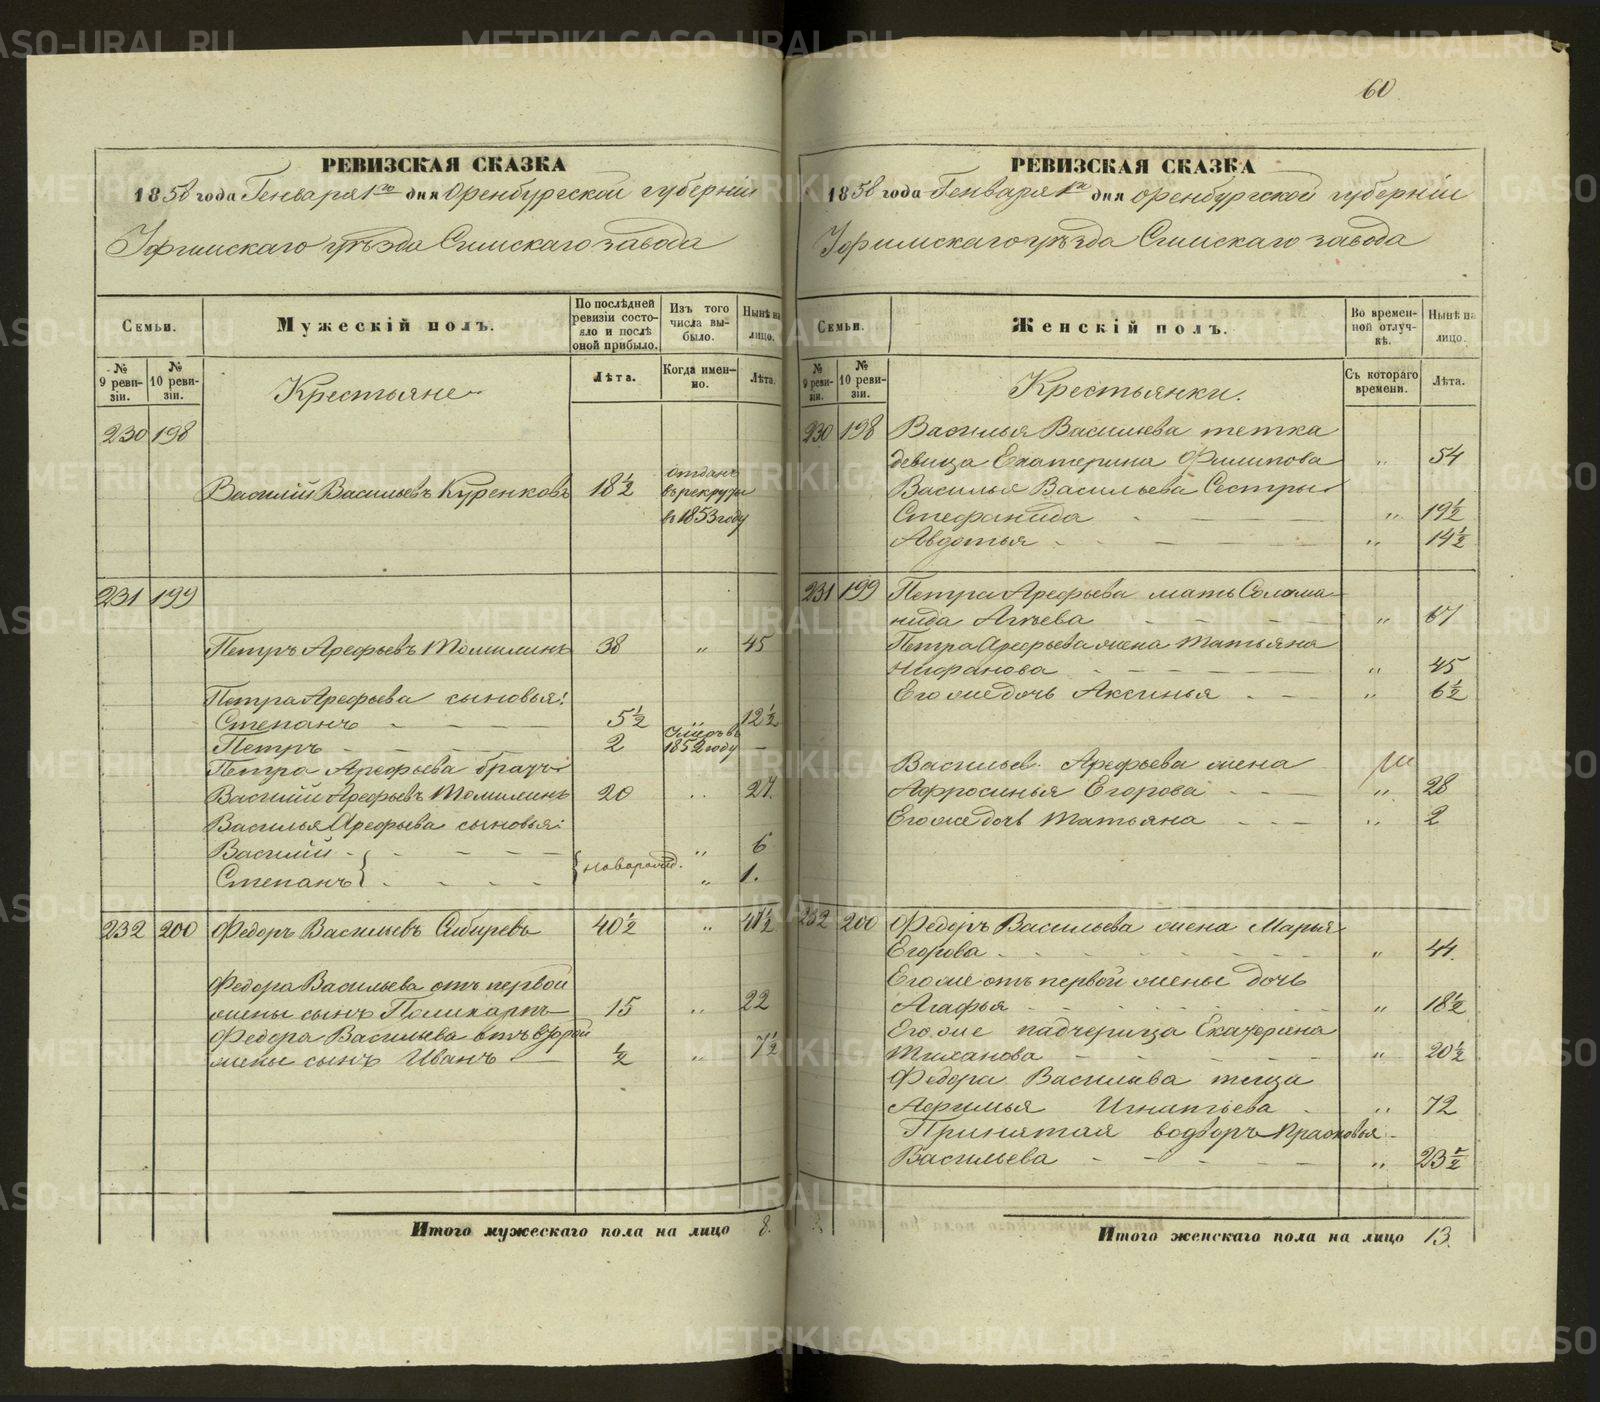 60
РЕВИЗСКАЯ СКАЗКА
1858 года Генваря 1го дня Оренбургской губерніи
Уфимскаго уѣзда Симскаго завода
Семьи.
Мужескій полъ.
По послѣдней ревизіи состояло и послѣ оной прибыло.
Изъ того числа выбыло.
Нынѣ на лицо.
№ 9 ревизіи.
№ 10 ревизіи.
Крестьяне
Лѣта.
Когда именно.
Лѣта.
230 198
Василій Васильевъ Куренковъ 18½ отданъ в рекруты в 1853 году
231 199
Петръ Арефьевъ Томилинъ 38 „ 45
Петра Арефьева сыновья:
Степанъ 5½ 12½
Петръ 2 Умеръ въ 1852 году —
Петра Арефьева братъ
Василій Арефьевъ Томилинъ 20 „ 27
Василья Арефьева сыновья:
Василій „ 6
новорожд.
Степанъ „ 1.
232 200 Федоръ Васильевъ Сибиревъ 40½ „ 47½
Федора Васильева отъ первой
жены сынъ Поликарпъ 15 „ 22
Федора Васильева отъ второй
жены сынъ Иванъ ½ „ 7½
Итого мужескаго пола на лицо 8.
РЕВИЗСКАЯ СКАЗКА
1858 года Генваря 1го дня Оренбургской губерніи
Уфимскаго уѣзда Симскаго завода
Семьи.
Женскій полъ.
Во временной отлучкѣ.
Нынѣ на лицо.
№ 9 ревизіи.
№ 10 ревизіи.
Крестьянки.
Съ котораго времени.
Лѣта.
230 198 Василья Васильева тетка
девица Екатерина Филипова „ 54
Василья Васильева Сестры
Стефанида „ 19½
Авдотья „ 14½
231 199 Петра Арефьева мать Солома-
нида „ 67
Петра Арефьева жена Татьяна
Нифанова „ 45
Его же дочь Аксинья „ 6½
Васильев. Арефьева жена
Афросинья Егорова „ 28
Его же дочь Татьяна „ 2
232 200 Федоръ Васильева жена Марья
Егорова „ 44.
Его же отъ первой жены дочь
Агафья „ 18½
Его же падчерица Екатерина
Тиханова „ 20½
Федора Васильева теща
Афимья Игнатьева „ 72
Принятая водворъ Прасковья
Васильева „ 23½
Итого женскаго пола на лицо 13.
METRIKI.GASO-URAL.RU